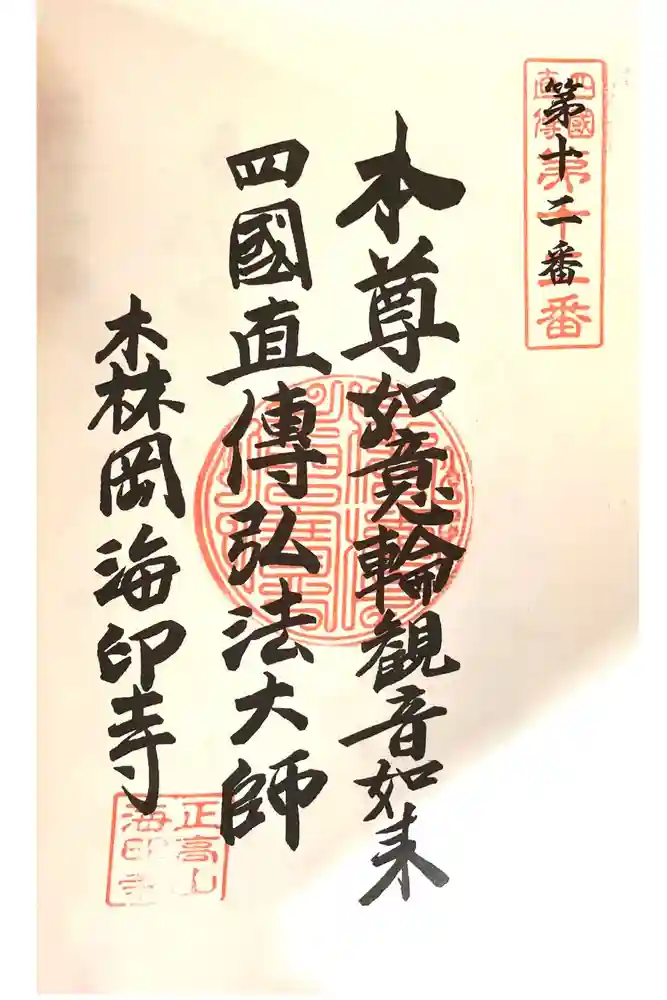 第十二番
四國直傳
第十二番
本尊如意輪観音如来
四國直傳弘法大師
森岡海印寺
正高山
海印寺